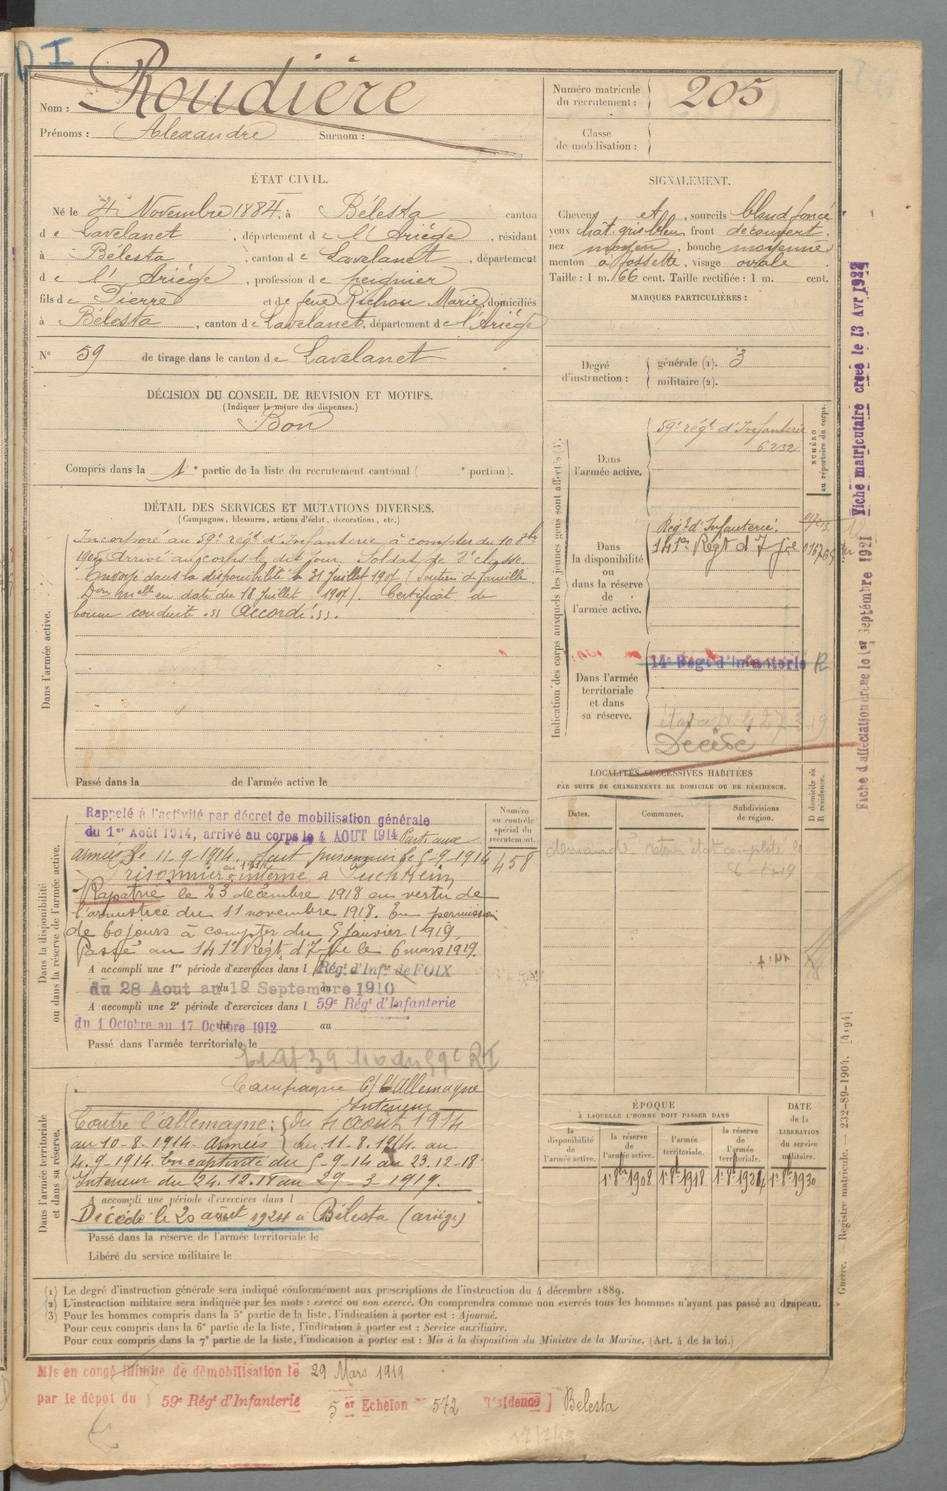 D I
Nom : Roudière
Prénoms : Alexandre Surnom :
Numéro matricule du recrutement : 205
Classe de mobilisation :
ÉTAT CIVIL.
Né le 4 Novembre 1884, à Bélesta canton
de Lavelanet, département de l'Ariège, résidant
à Bélesta, canton de Lavelanet, département
de l'Ariège, profession de peignier
fils de Pierre et de feue Richou Marie, domiciliés
à Bélesta, canton de Lavelanet, département de l'Ariège
N° 59 de tirage dans le canton de Lavelanet
SIGNALEMENT.
Cheveux et, sourcils blond foncé
yeux chât. gris bleu front découvert.
nez moyen, bouche moyenne
menton à fossette, visage ovale
Taille : 1 m. 66 cent. Taille rectifiée : 1 m. cent.
MARQUES PARTICULIÈRES :
Degré d'instruction : générale (1). 3
militaire (2).
DÉCISION DU CONSEIL DE REVISION ET MOTIFS.
(Indiquer la nature des dispenses.)
Bon
Compris dans la 1e partie de la liste du recrutement cantonal ( e portion).
DÉTAIL DES SERVICES ET MUTATIONS DIVERSES.
(Campagnes, blessures, actions d'éclat, décorations, etc.)
Dans l'armée active.
Incorporé au 59e régt d'Infanterie à compter du 10 8bre
Arrivé au corps le dit jour. Soldat de 2e classe.
Envoyé dans la disponibilité le 31 Juillet 1907 (Soutien de famille
en date du 18 Juillet 1907). Certificat de
bonne conduite "Accordé".
Passé dans la de l'armée active le
Indication des corps auxquels les jeunes gens sont affectés
NUMÉRO au répertoire du corps.
Dans l'armée active.
59e régt d'Infanterie
6232
Dans la disponibilité ou dans la réserve de l'armée active.
Régt d'Infanterie.
141e Régt d'Ifie
Dans l'armée territoriale et dans sa réserve.
14e Régt d'Infanterie
Décédé
Fiche matriculaire créée le 13 Avr 1922
Fiche d'affectation créée le 1er Septembre 1921
LOCALITÉS SUCCESSIVES HABITÉES
PAR SUITE DE CHANGEMENTS DE DOMICILE OU DE RÉSIDENCE.
Dates. Communes. Subdivisions de région. D domicile ou R résidence.
Dans la disponibilité ou dans la réserve de l'armée active.
Numéro au contrôle spécial du recrutement.
458
Rappelé à l'activité par décret de mobilisation générale
du 1er Août 1914, arrivé au corps le 4 AOUT 1914 Parti aux
armées le 11-9-1914. Fait prisonnier le 5-9-1914
Prisonnier interné à Puchheim
Rapatrié le 23 décembre 1918 en vertu de
l'armistice du 11 novembre 1918. En permission
de 60 jours à compter du 5 Janvier 1919.
Passé au 141e Régt d'Ifie le 6 mars 1919.
A accompli une 1re période d'exercices dans l Régt d'Infie de FOIX
du 28 Aout au 19 Septembre 1910
A accompli une 2e période d'exercices dans l 59e Régt d'Infanterie
du 1 Octobre au 17 Octobre 1912 au
Passé dans l'armée territoriale le
Dans l'armée territoriale et dans sa réserve.
Campagne C/ l'Allemagne
Intérieur
Contre l'allemagne : du 4 août 1914
au 10-8-1914. Armées du 11-8-1914 au
4-9-1914. En captivité du 5-9-14 au 23.12-18
Intérieur du 24.12.18 au 29-3-1919.
A accompli une période d'exercices dans l
Décédé le 20 août 1924 à Bélesta (ariège)
Passé dans la réserve de l'armée territoriale le
Libéré du service militaire le
ÉPOQUE
À LAQUELLE L'HOMME DOIT PASSER DANS
la disponibilité de l'armée active.
la réserve de l'armée active.
l'armée territoriale.
la réserve de l'armée territoriale.
DATE de la LIBÉRATION du service militaire.
1er 8bre 1908 1er 8bre 1918 1er 8bre 1924 1er 8bre 1930
Guerre. — Registre matricule. — 232-89-1904. [4194]
(1) Le degré d'instruction générale sera indiqué conformément aux prescriptions de l'instruction du 4 décembre 1889.
(2) L'instruction militaire sera indiquée par les mots : exercé ou non exercé. On comprendra comme non exercés tous les hommes n'ayant pas passé au drapeau.
(3) Pour les hommes compris dans la 5e partie de la liste, l'indication à porter est : Ajourné.
Pour ceux compris dans la 6e partie de la liste, l'indication à porter est : Service auxiliaire.
Pour ceux compris dans la 7e partie de la liste, l'indication à porter est : Mis à la disposition du Ministre de la Marine. (Art. 4 de la loi.)
Mis en congé illimité de démobilisation le 29 Mars 1919
par le dépôt du 59e Régt d'Infanterie 5er Echelon n° 572 Résidence] Bélesta